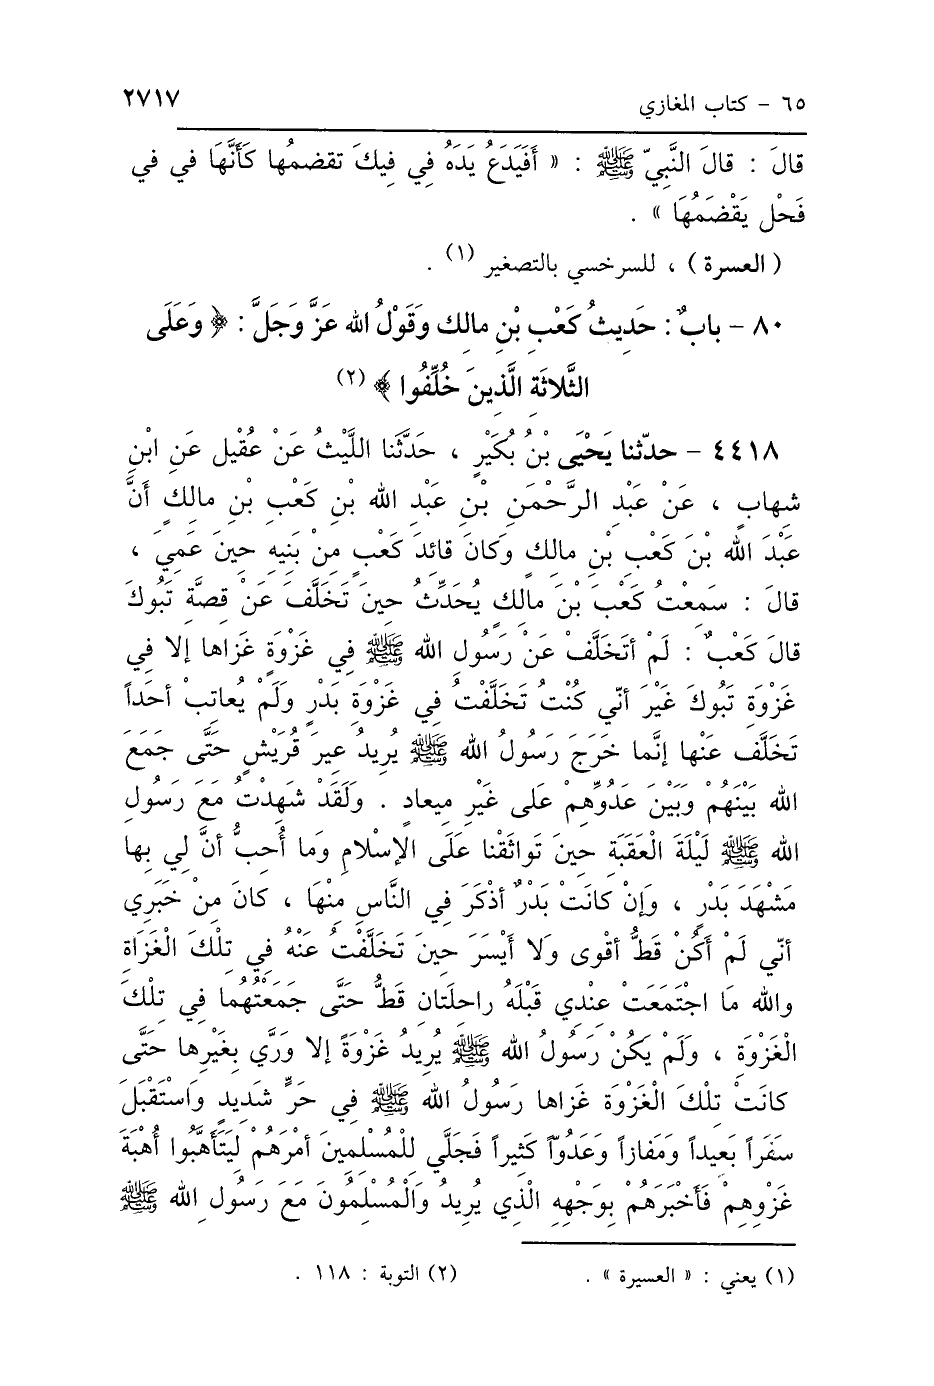 ٦٥ - كتاب المغازي ٢٧١٧
قالَ : قالَ النَّبيّ ﷺ : « أَفَيَدَعُ يَدَهُ فِي فِيكَ تقضمُها كَأَنَّهَا في في
فَحْلٍ يَقْضَمُهَا » .
( العسرة ) ، للسرخسي بالتصغير (١) .
٨٠ - بابٌ : حَدِيثُ كَعْبِ بْنِ مالك وَقَوْلُ الله عَزَّ وَجَلَّ : ﴿ وَعَلَى
الثَّلاثَةِ الَّذِينَ خُلِّفُوا ﴾ (٢)
٤٤١٨ - حدّثنا يَحْيَى بْنُ بُكَيْرٍ ، حَدَّثَنا اللَّيْثُ عَنْ عُقَيْلٍ عَنِ ابْنِ
شهابٍ ، عَنْ عَبْدِ الرَّحْمَنِ بْنِ عَبْدِ الله بْنِ كَعْبِ بْنِ مالكٍ أَنَّ
عَبْدَ الله بْنَ كَعْبِ بْنِ مالكٍ وَكانَ قائدَ كَعْبٍ مِنْ بَنِيهِ حِينَ عَمِيَ ،
قالَ : سَمِعْتُ كَعْبَ بْنَ مالكٍ يُحَدِّثُ حِينَ تَخَلَّفَ عَنْ قِصَّةِ تَبُوكَ
قالَ كَعْبٌ : لَمْ أتَخَلَّفْ عَنْ رَسُولِ الله ﷺ فِي غَزْوَةٍ غَزاها إلا فِي
غَزْوَةِ تَبُوكَ غَيْرَ أنّي كُنْتُ تَخَلَّفْتُ فِي غَزْوَةِ بَدْرٍ وَلَمْ يُعاتِبْ أحَداً
تَخَلَّفَ عَنْها إنَّما خَرَجَ رَسُولُ الله ﷺ يُرِيدُ عِيرَ قُرَيْشٍ حَتَّى جَمَعَ
الله بَيْنَهُمْ وَبَيْنَ عَدُوِّهِمْ عَلى غَيْرِ مِيعادٍ . وَلَقَدْ شَهِدْتُ مَعَ رَسُولِ
الله ﷺ لَيْلَةَ الْعَقَبَةِ حِينَ تَواثَقْنا عَلَى الإسْلامِ وَما أُحِبُّ أنَّ لِي بِها
مَشْهَدَ بَدْرٍ ، وَإنْ كانَتْ بَدْرٌ أذْكَرَ فِي النَّاسِ مِنْهَا ، كانَ مِنْ خَبَرِي
أنّي لَمْ أَكُنْ قَطُّ أقْوى وَلا أَيْسَرَ حِينَ تَخَلَّفْتُ عَنْهُ فِي تلْكَ الْغَزَاة
والله مَا اجْتَمَعَتْ عِنْدِي قَبْلَهُ راحِلَتَانِ قَطُّ حَتَّى جَمَعْتُهُما فِي تلْكَ
الْغَزْوَةِ ، وَلَمْ يَكُنْ رَسُولُ الله ﷺ يُرِيدُ غَزْوَةً إلا وَرَّي بِغَيْرِها حَتَّى
كانَتْ تِلْكَ الْغَزْوَة غَزاها رَسُولُ الله ﷺ فِي حَرٍّ شَدِيدٍ وَاسْتَقْبَلَ
سَفَراً بَعِيداً وَمَفازاً وَعَدُوّاً كَثِيراً فَجَلَّي لِلْمُسْلِمِينَ أمْرَهُمْ لِيَتَأَهَّبُوا أُهْبَةَ
غَزْوِهِمْ فَأَخْبَرَهُمْ بِوَجْهِهِ الَّذي يُرِيدُ وَالْمُسْلِمُونَ مَعَ رَسُولِ الله ﷺ
(١) يعني : « العسيرة » . (٢) التوبة : ١١٨ .